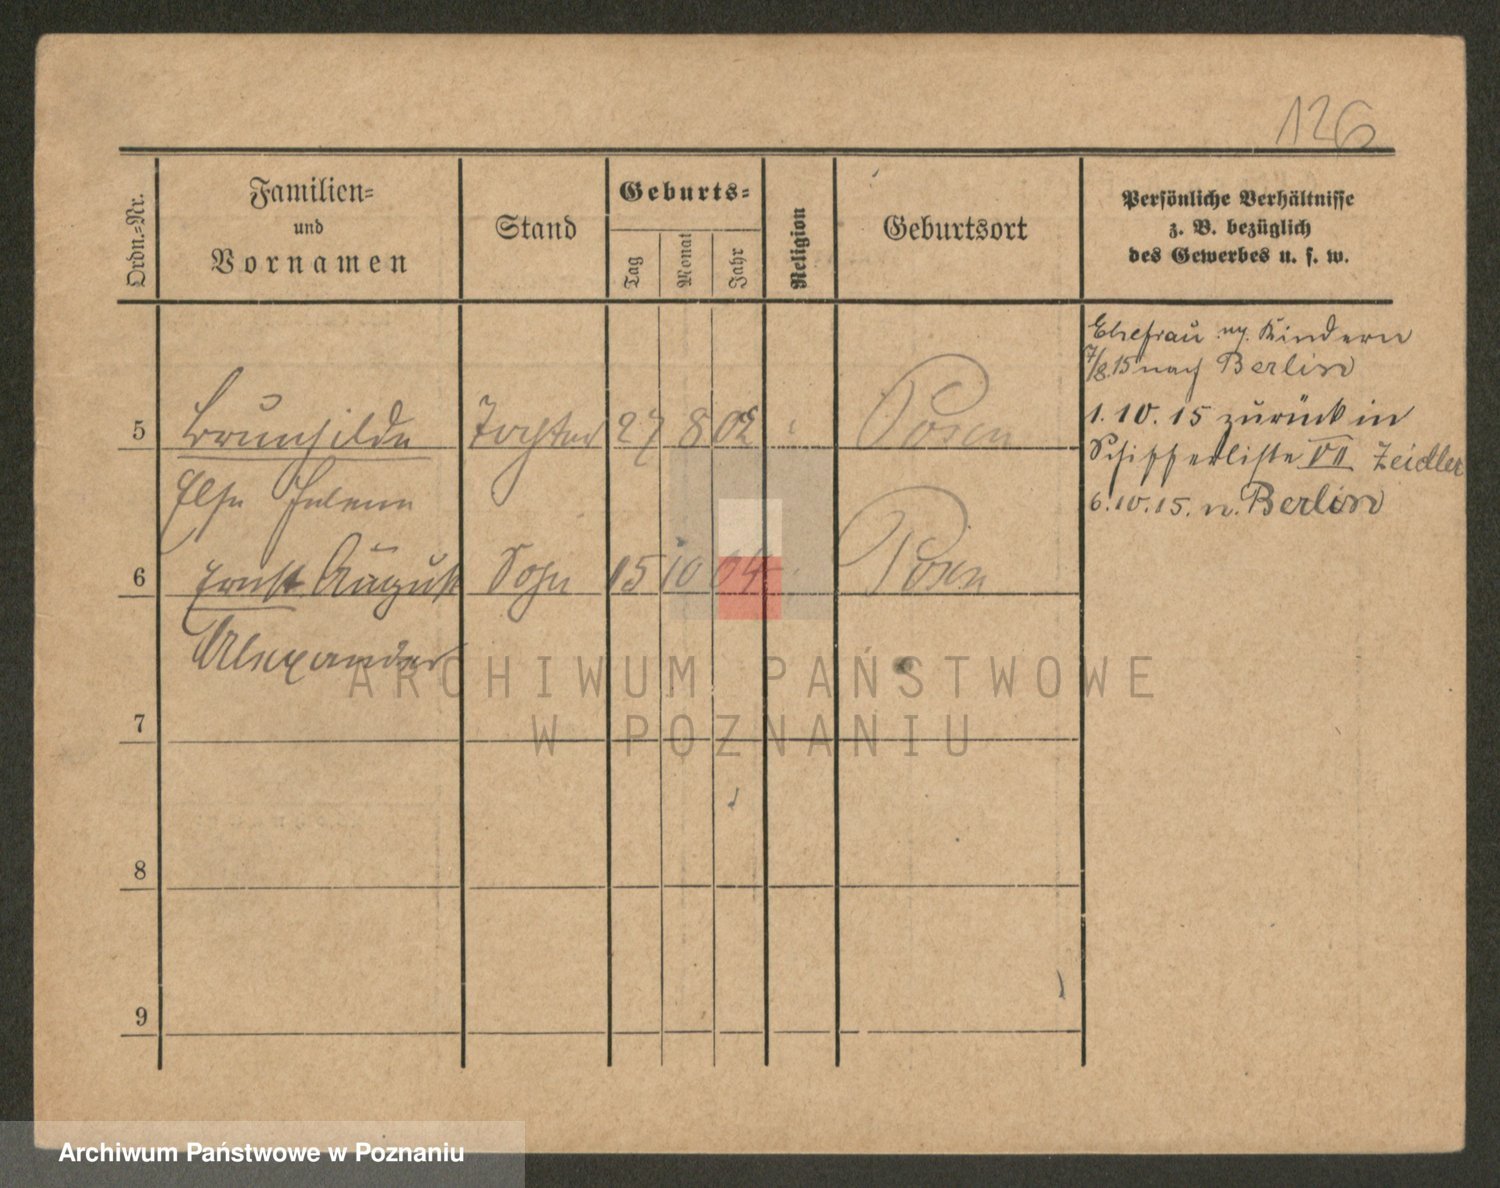 126
Ordn.-Nr.
Familien-
und
Vornamen
Stand
Geburts-
Tag
Monat
Jahr
Religion
Geburtsort
Persönliche Verhältnisse
z. B. bezüglich
des Gewerbes u. s. w.
Ehefrau Kindern
7/8.15 nach Berlin
1. 10. 15 zurück in
Schifferliste VII Zeidler
6.10.15. n. Berlin
5 Brunhilde Tochter 27 8 02 Posen
Else Helene
6 Ernst August Sohn 15 10 04 Posen
Alexander
7
8
9
ARCHIWUM PAŃSTWOWE
W POZNANIU
Archiwum Państwowe w Poznaniu